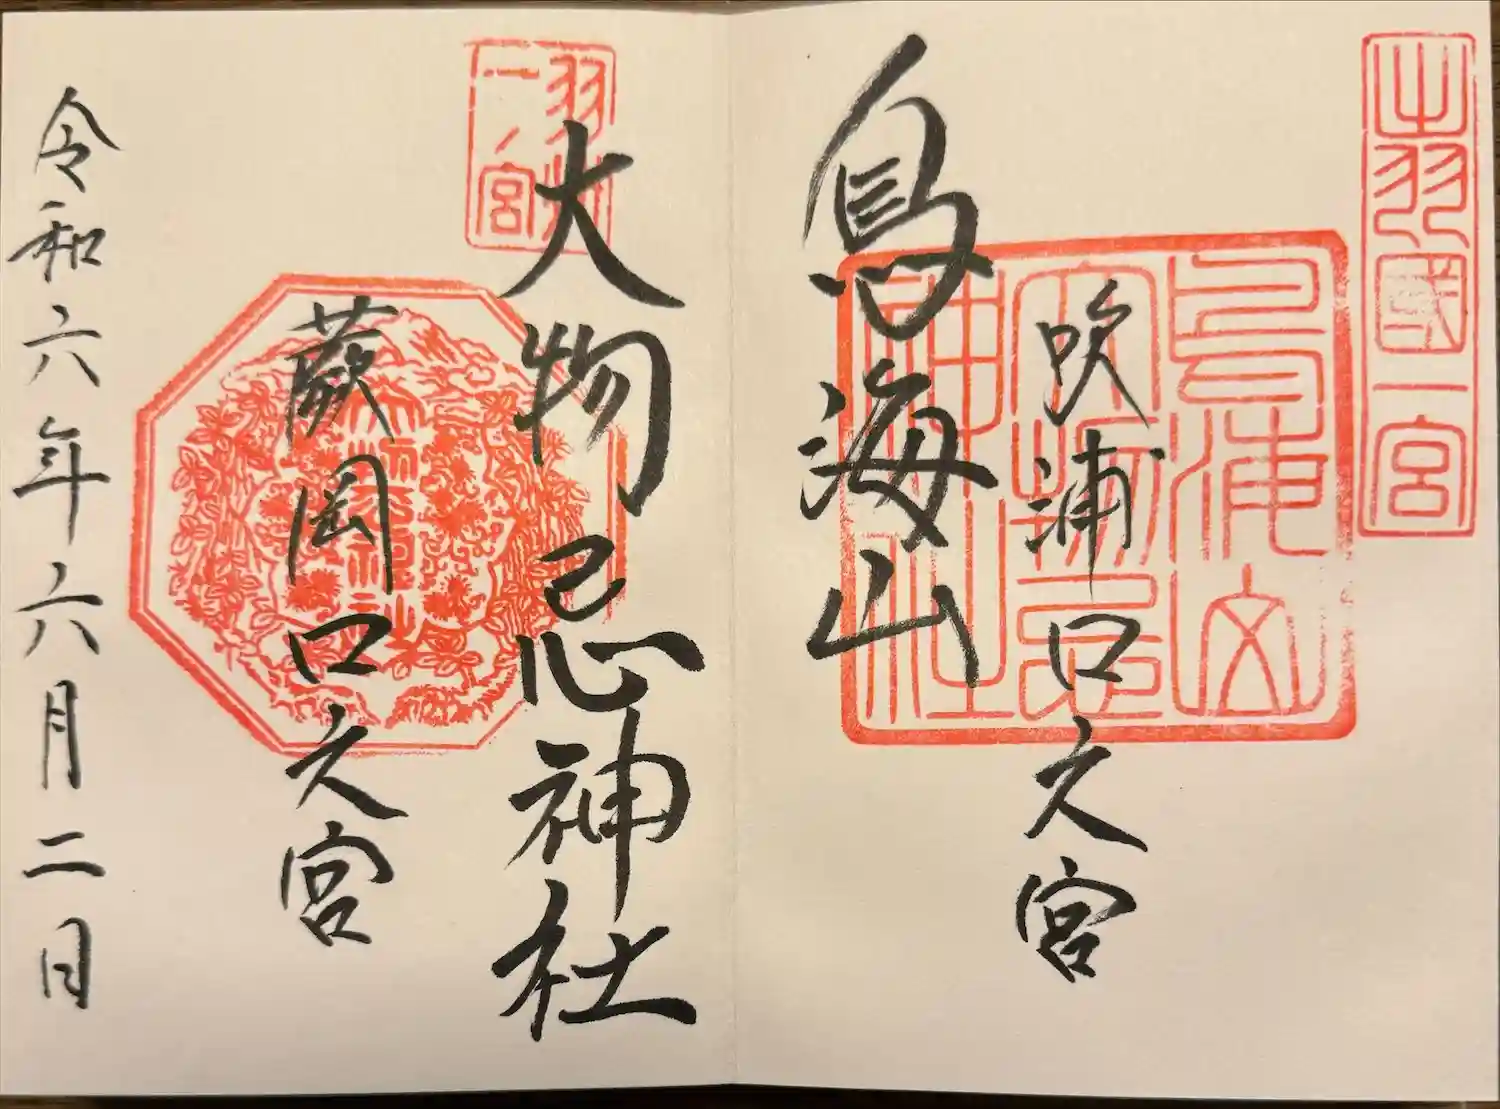 出羽國一宮
吹浦口之宮
鳥海山
鳥海山
大物忌
神社
羽州
一ノ宮
大物忌神社
蕨岡口之宮
大物忌神社
令和六年六月二日